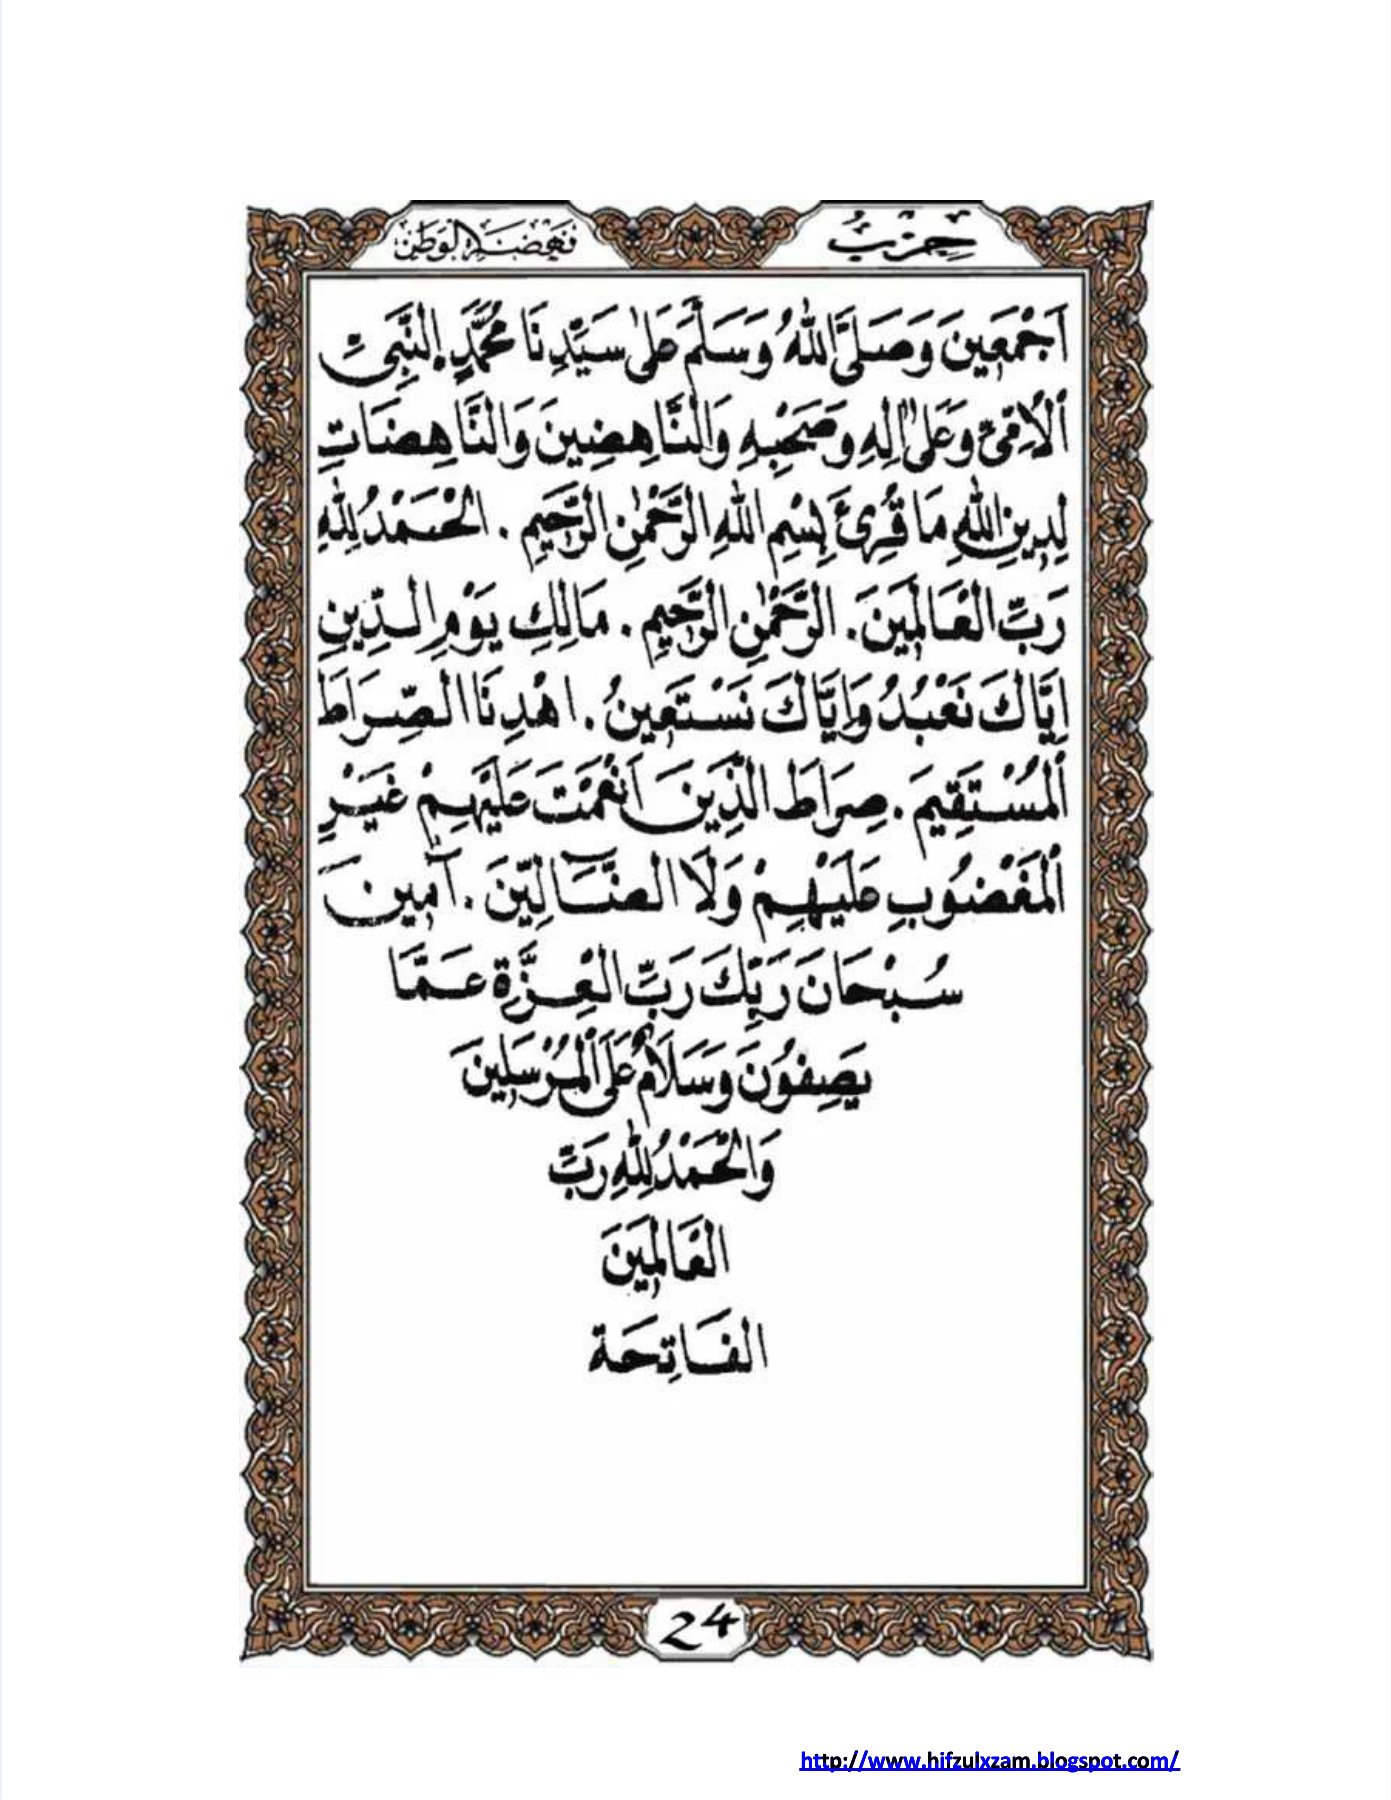 حِزْبُ نَهْضَةِ الْوَطَنْ
اَجْمَعِينَ وَصَلَّى اللهُ وَسَلَّمَ عَلٰى سَيِّدِنَا مُحَمَّدٍ إِلنَّبِىِّ
اْلاُمِّىِّ وَعَلٰى اٰلِهِ وَصَحْبِهِ وَالنَّاهِضِينَ وَالنَّاهِضَاتِ
لِدِينِ اللهِ مَا قُرِئَ بِسْمِ اللهِ الرَّحْمٰنِ الرَّحِيمِ . اَلْحَمْدُ لِلّٰهِ
رَبِّ الْعَالَمِينَ. الرَّحْمٰنِ الرَّحِيمِ . مَالِكِ يَوْمِ الدِّينِ
اِيَّاكَ نَعْبُدُ وَاِيَّاكَ نَسْتَعِينُ . اهْدِنَا الصِّرَاطَ
الْمُسْتَقِيمَ . صِرَاطَ الَّذِينَ اَنْعَمْتَ عَلَيْهِمْ غَيْرِ
الْمَغْضُوبِ عَلَيْهِمْ وَلَا الضَّآلِّينَ . آمِينَ
سُبْحَانَ رَبِّكَ رَبِّ الْعِزَّةِ عَمَّا
يَصِفُونَ وَسَلَامٌ عَلَى الْمُرْسَلِينَ
وَالْحَمْدُ لِلّٰهِ رَبِّ
الْعَالَمِينَ
الفَاتِحَة
24
http://www.hifzulxzam.blogspot.com/